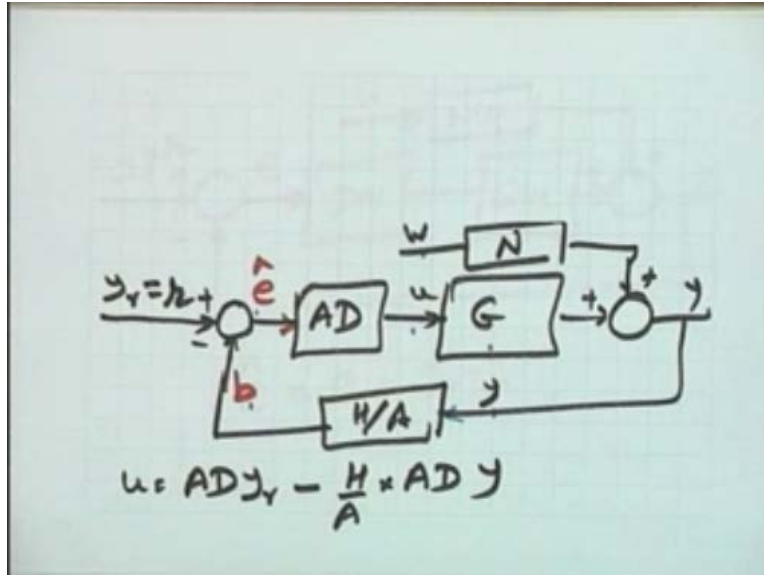 w N
y_r = r + ê AD u G + + y
-
b H/A y
u = AD y_r - H/A × AD y